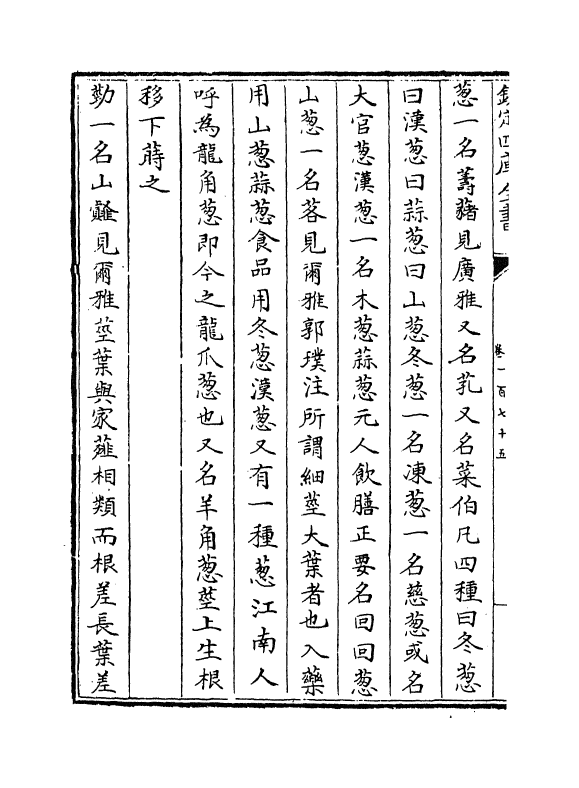 欽定四庫全書
卷一百七十五
葱一名蕚蕏見廣雅又名芤又名菜伯凡四種曰冬葱
曰漢葱曰蒜葱曰山葱冬葱一名凍葱一名慈葱或名
大官葱漢葱一名木葱蒜葱元人飲膳正要名回回葱
山葱一名茖見爾雅郭璞注所謂細莖大葉者也入藥
用山葱蒜葱食品用冬葱漢葱又有一種葱江南人
呼為龍角葱即今之龍爪葱也又名羊角葱莖上生根
移下蒔之
葝一名山䪥見爾雅莖葉與家薤相類而根差長葉差